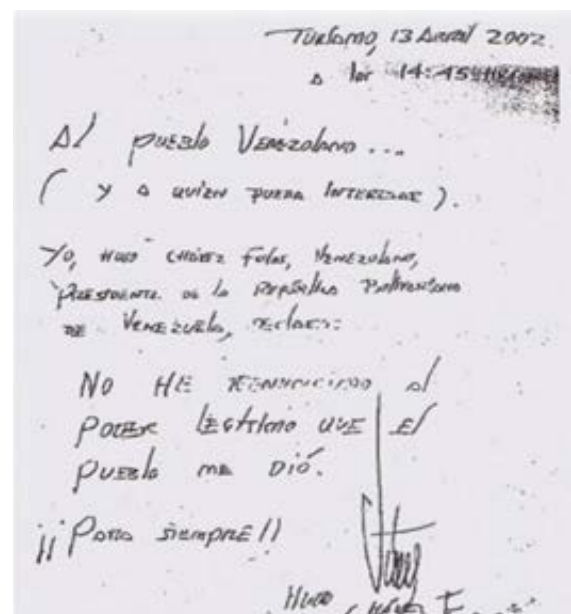 Turiamo, 13 Abril 2002
a las 14:45 Horas
Al pueblo Venezolano...
( y a quien pueda interesar ).
Yo, Hugo Chávez Frías, Venezolano,
Presidente de la República Bolivariana
de Venezuela, declaro:
No he renunciado al
poder legítimo que el
pueblo me dió.
¡¡Para siempre!!
Hugo Chávez F